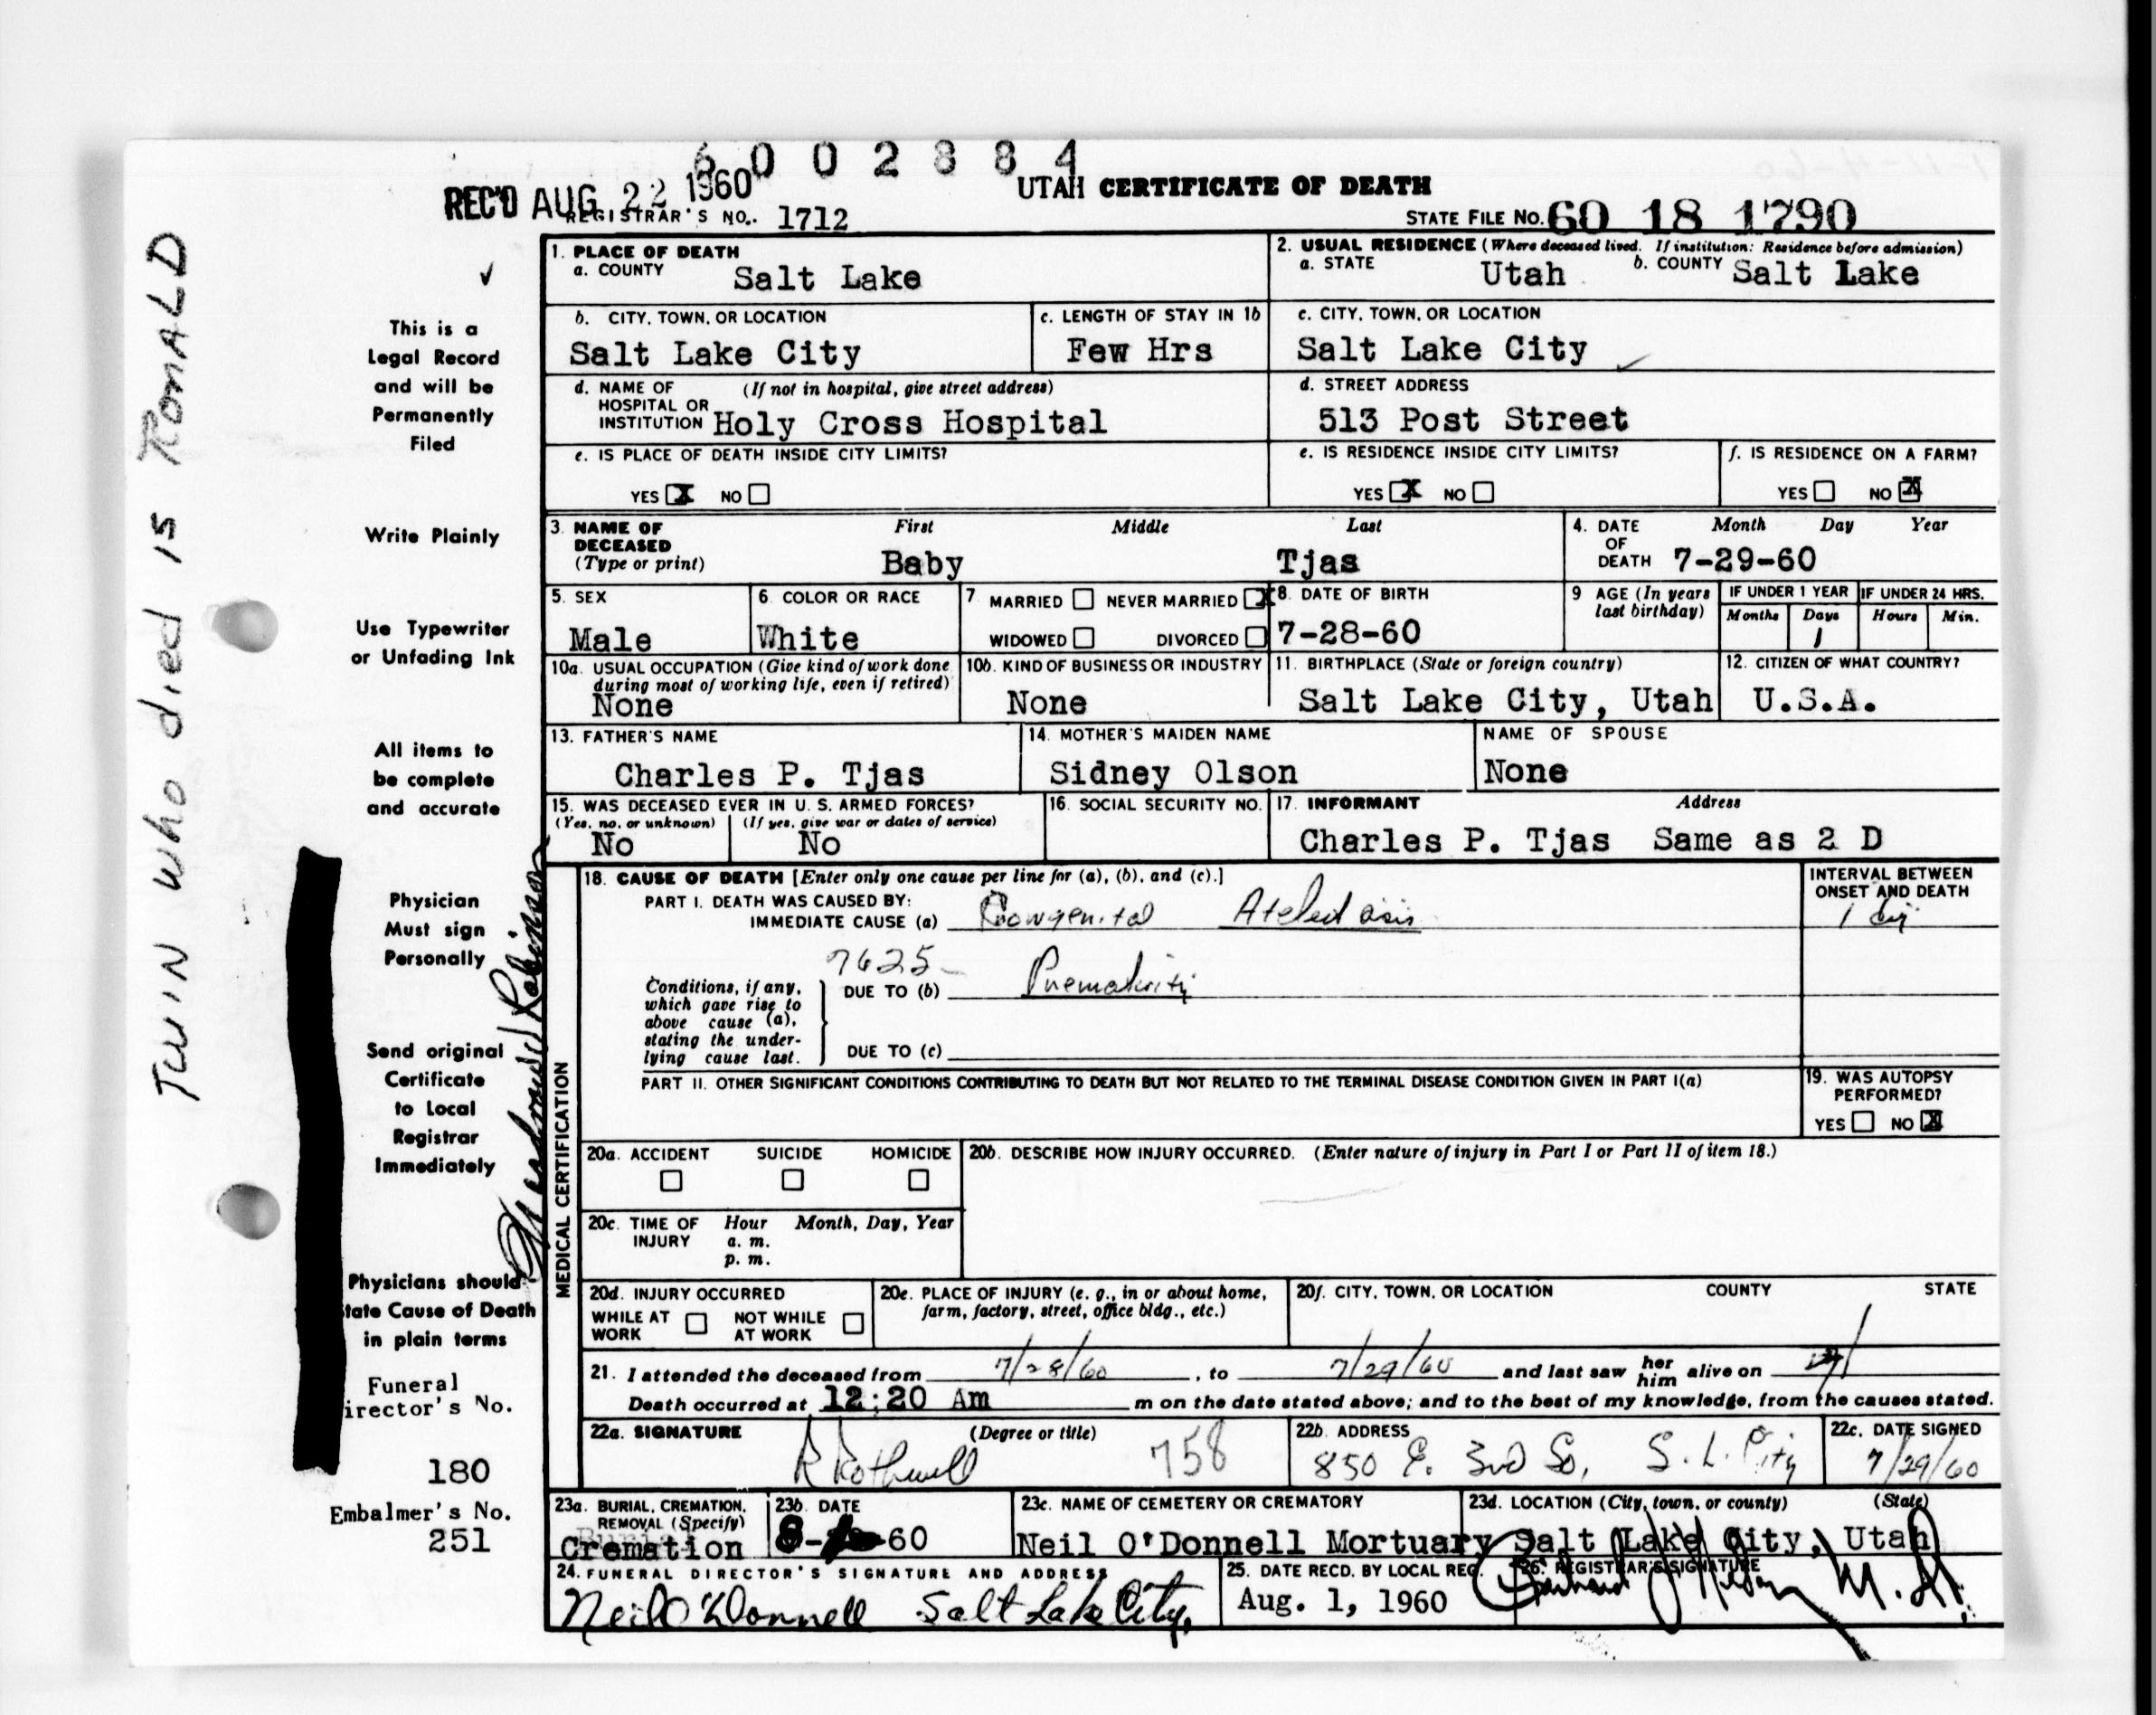 6002884
REC'D AUG 22 1960
UTAH CERTIFICATE OF DEATH
REGISTRAR'S NO. 1712
STATE FILE NO. 60 18 1790
TWIN who died is RONALD
✓
This is a
Legal Record
and will be
Permanently
Filed
Write Plainly
Use Typewriter
or Unfading Ink
All items to
be complete
and accurate
Physician
Must sign
Personally
Send original
Certificate
to Local
Registrar
Immediately
Physicians should
tate Cause of Death
in plain terms
Funeral
irector's No.
180
Embalmer's No.
251
1. PLACE OF DEATH
a. COUNTY Salt Lake
2. USUAL RESIDENCE (Where deceased lived. If institution: Residence before admission)
a. STATE Utah b. COUNTY Salt Lake
b. CITY, TOWN, OR LOCATION
Salt Lake City
c. LENGTH OF STAY IN 1b
Few Hrs
c. CITY, TOWN, OR LOCATION
Salt Lake City
d. NAME OF (If not in hospital, give street address)
HOSPITAL OR
INSTITUTION Holy Cross Hospital
d. STREET ADDRESS
513 Post Street
e. IS PLACE OF DEATH INSIDE CITY LIMITS?
YES X NO
e. IS RESIDENCE INSIDE CITY LIMITS?
YES X NO
f. IS RESIDENCE ON A FARM?
YES NO X
3. NAME OF DECEASED (Type or print)
First Middle Last
Baby Tjas
4. DATE OF DEATH
Month Day Year
7-29-60
5. SEX
Male
6. COLOR OR RACE
White
7. MARRIED NEVER MARRIED X
WIDOWED DIVORCED
8. DATE OF BIRTH
7-28-60
9 AGE (In years last birthday)
IF UNDER 1 YEAR
Months Days
1
IF UNDER 24 HRS.
Hours Min.
10a. USUAL OCCUPATION (Give kind of work done
during most of working life, even if retired)
None
10b. KIND OF BUSINESS OR INDUSTRY
None
11. BIRTHPLACE (State or foreign country)
Salt Lake City, Utah
12. CITIZEN OF WHAT COUNTRY?
U.S.A.
13. FATHER'S NAME
Charles P. Tjas
14. MOTHER'S MAIDEN NAME
Sidney Olson
NAME OF SPOUSE
None
15. WAS DECEASED EVER IN U. S. ARMED FORCES?
(Yes, no, or unknown) (If yes, give war or dates of service)
No No
16. SOCIAL SECURITY NO.
17. INFORMANT Address
Charles P. Tjas Same as 2 D
MEDICAL CERTIFICATION
18. CAUSE OF DEATH [Enter only one cause per line for (a), (b), and (c).]
PART I. DEATH WAS CAUSED BY:
IMMEDIATE CAUSE (a) Congenital Atelectasis
INTERVAL BETWEEN
ONSET AND DEATH
1 day
7625
Conditions, if any,
which gave rise to
above cause (a),
stating the under-
lying cause last.
DUE TO (b) Prematurity
DUE TO (c)
PART II. OTHER SIGNIFICANT CONDITIONS CONTRIBUTING TO DEATH BUT NOT RELATED TO THE TERMINAL DISEASE CONDITION GIVEN IN PART I(a)
19. WAS AUTOPSY
PERFORMED?
YES NO X
20a. ACCIDENT SUICIDE HOMICIDE
20b. DESCRIBE HOW INJURY OCCURRED. (Enter nature of injury in Part I or Part II of item 18.)
20c. TIME OF INJURY
Hour Month, Day, Year
a. m.
p. m.
20d. INJURY OCCURRED
WHILE AT WORK NOT WHILE AT WORK
20e. PLACE OF INJURY (e. g., in or about home,
farm, factory, street, office bldg., etc.)
20f. CITY, TOWN, OR LOCATION COUNTY STATE
21. I attended the deceased from 7/28/60, to 7/29/60 and last saw her him alive on
Death occurred at 12:20 Am m on the date stated above; and to the best of my knowledge, from the causes stated.
22a. SIGNATURE (Degree or title)
R Rothwell 758
22b. ADDRESS
850 E. 3rd So, S. L. City
22c. DATE SIGNED
7/29/60
23a. BURIAL, CREMATION,
REMOVAL (Specify)
Cremation
23b. DATE
8- -60
23c. NAME OF CEMETERY OR CREMATORY
Neil O'Donnell Mortuary
23d. LOCATION (City, town, or county) (State)
Salt Lake City, Utah
24. FUNERAL DIRECTOR'S SIGNATURE AND ADDRESS
Neil O'Donnell Salt Lake City,
25. DATE RECD. BY LOCAL REG.
Aug. 1, 1960
26. REGISTRAR'S SIGNATURE
M.D.